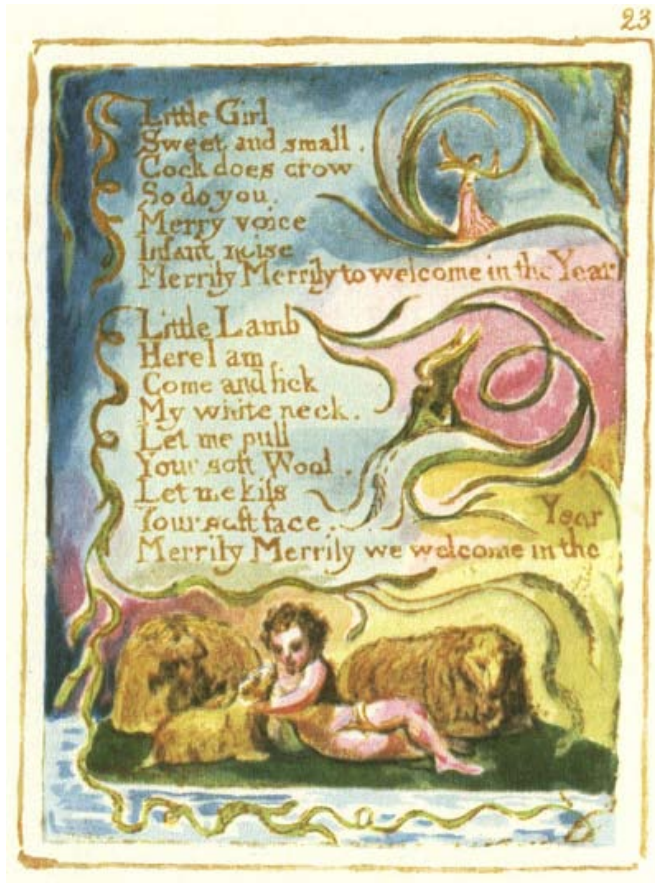 23
Little Girl
Sweet and small.
Cock does crow
So do you.
Merry voice
Infant noise
Merrily Merrily to welcome in the Year
Little Lamb
Here I am
Come and lick
My white neck.
Let me pull
Your soft Wool.
Let me kiſs
Your soft face.
Merrily Merrily we welcome in the Year